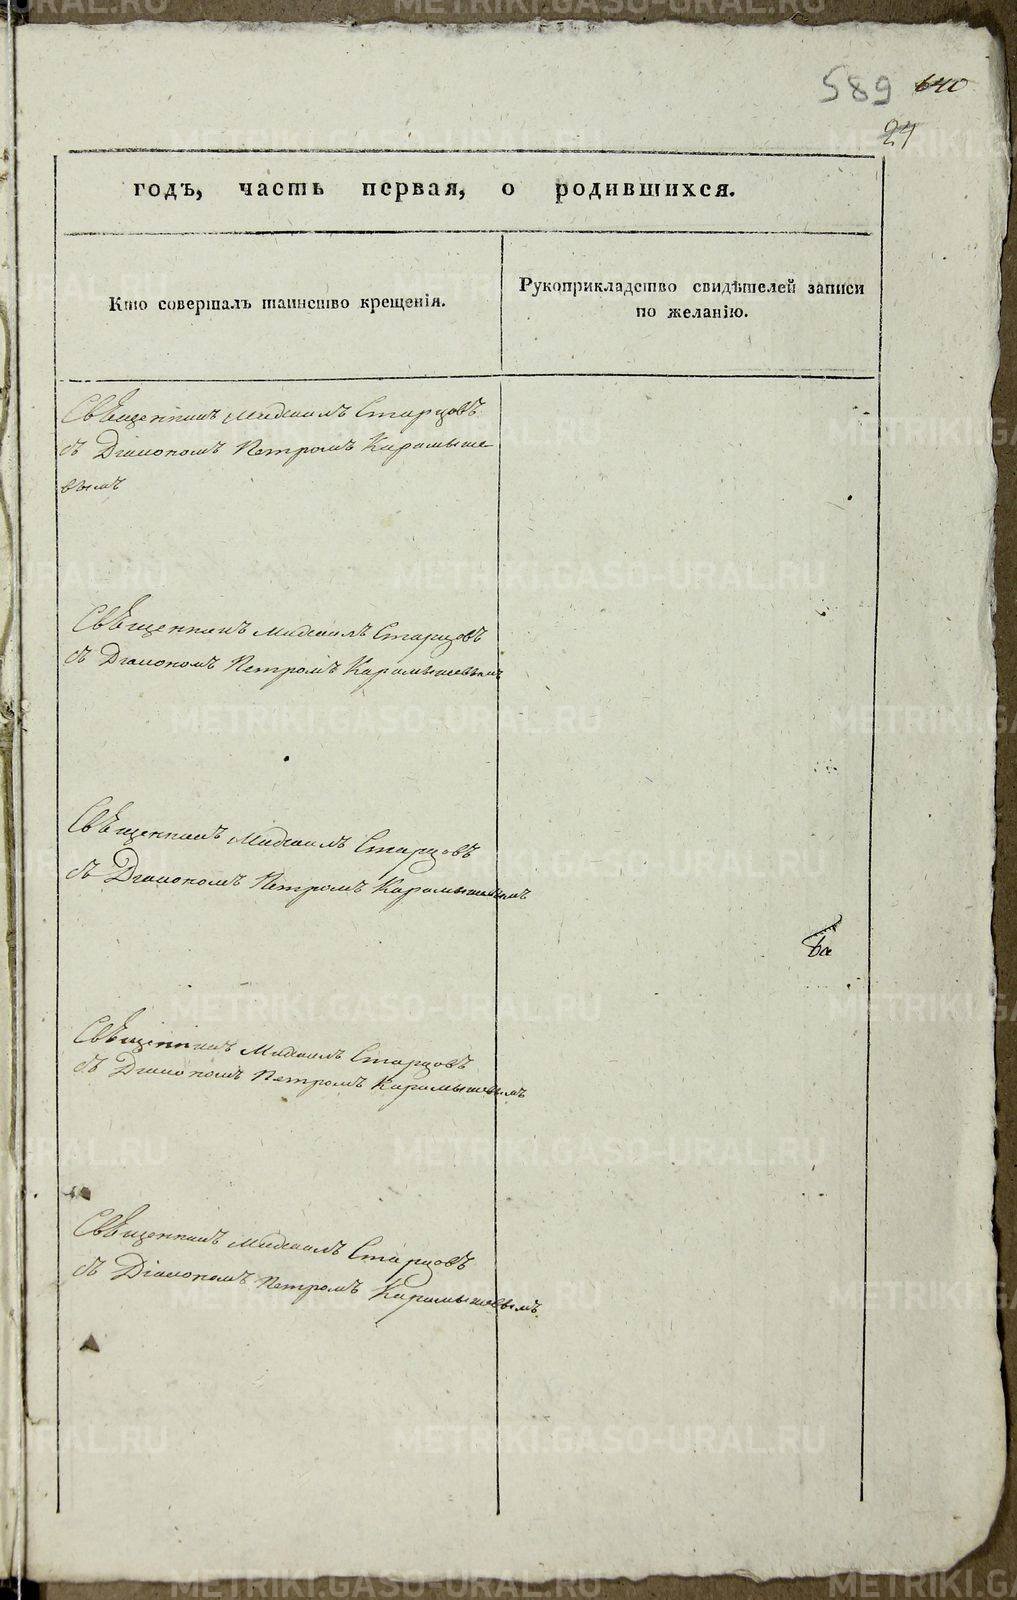 589 640
24
годъ, часть первая, о родившихся.
Кто совершалъ таинство крещенія.
Рукоприкладство свидѣтелей записи
по желанію.
Свѣщенникъ Михаилъ Старцовъ
съ Діакономъ Петромъ Карамыше
вымъ
Свѣщенникъ Михаилъ Старцовъ
съ Діакономъ Петромъ Карамышевымъ
Свѣщенникъ Михаилъ Старцовъ
съ Діакономъ Петромъ Карамышевымъ
Свѣщенникъ Михаилъ Старцовъ
съ Діакономъ Петромъ Карамышевымъ
Свѣщенникъ Михаилъ Старцовъ
съ Діакономъ Петромъ Карамышевымъ.
METRIKI.GASO-URAL.RU